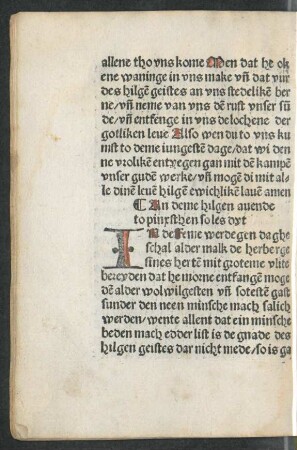 allene tho vns kome Men dat he ok
ene waninge in vns make vn̄ dat vür
des hilgē geistes an vns stedelikē ber
ne/vn̄ neme van vns dē rust vnser sū
de/vn̄ entfenge in vns de lochene der
gotliken leue Also wen du to vns ku
mst to deme iungestē dage/dat wi den
ne vrolikē entyegen gan mit dē kampē
vnser gudē werke/vn̄ mogē di mit al-
le dinē leuē hilgē ewichlikē lauē amen
¶ An deme hilgen auende
to pinxsthen so les dyt
IN desseme werdegen daghe
schal alder malk de herberge
sines hertē mit groteme vlite
bereyden dat he morne entfangē moge
dē alder wolwilgesten vn̄ sotestē gast
sunder den neen minsche mach salich
werden/wente allent dat ein minsche
beden mach edder list is de gnade des
hilgen geistes dar nicht mede/so is ga